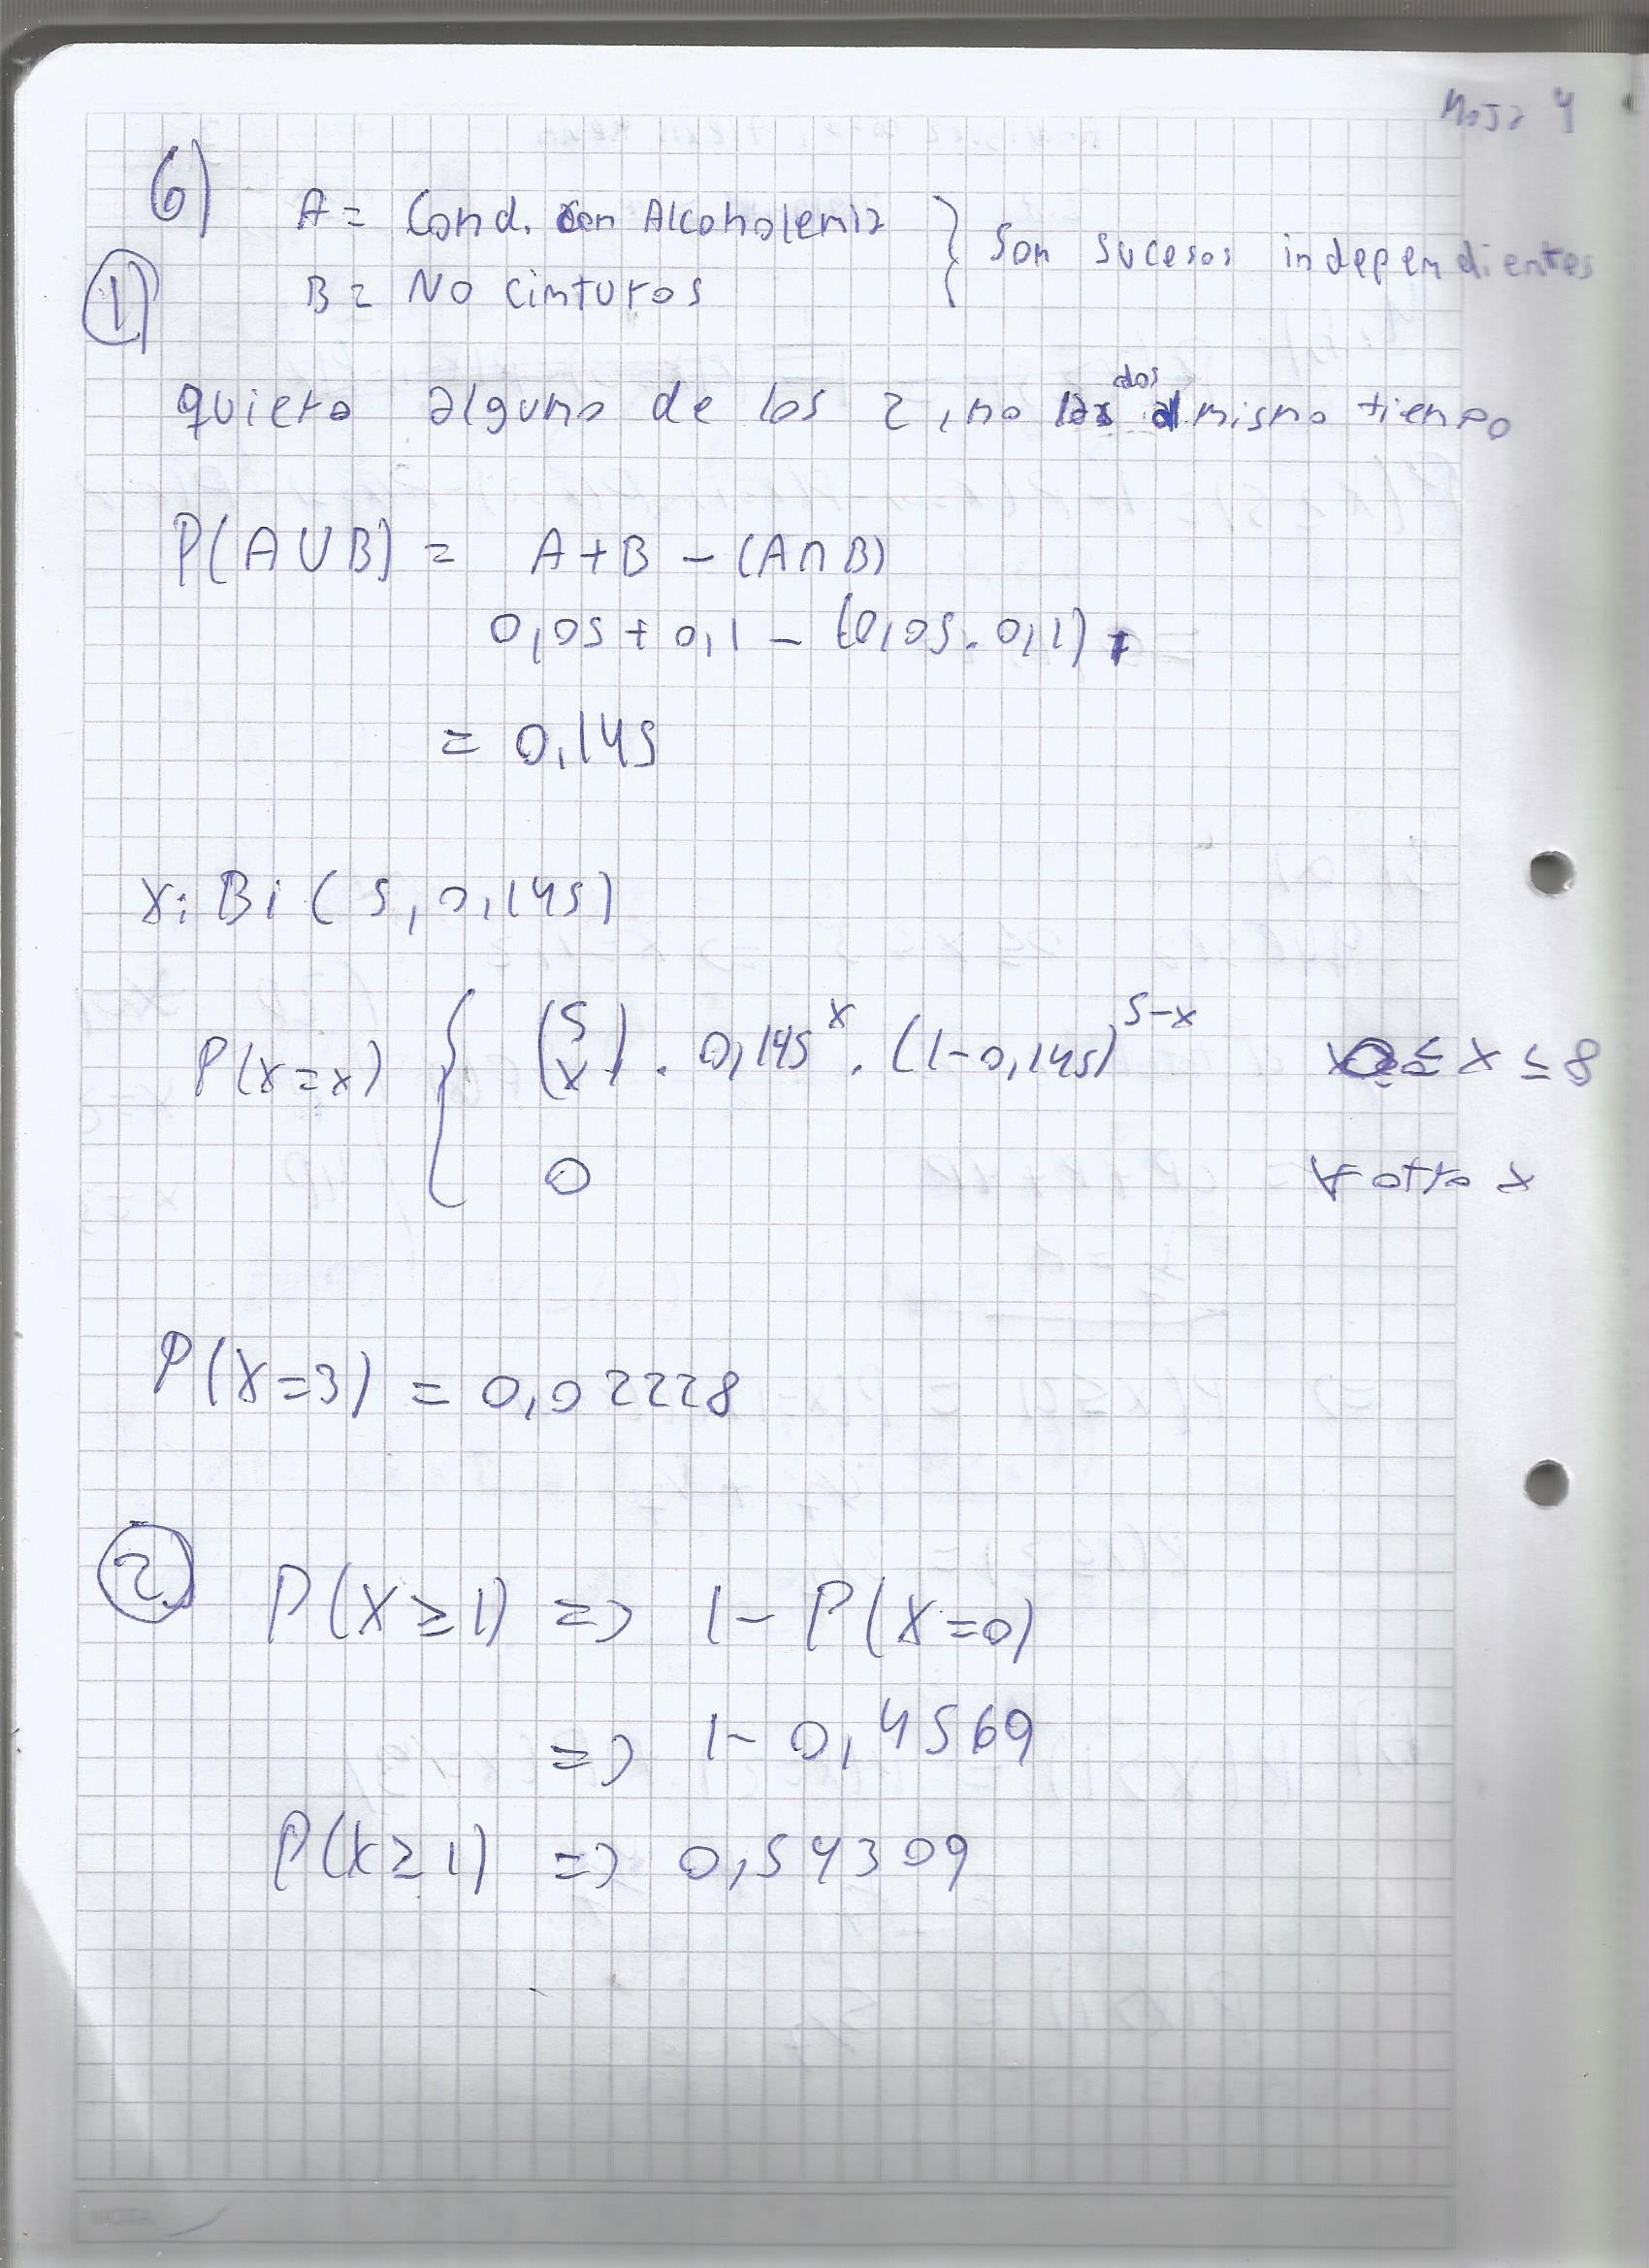 Hoja 4
6)
A = Cond. con Alcoholemia } Son sucesos independientes
① B = No cinturos
quiero alguno de los 2, no los dos al mismo tiempo
P(A∪B) = A+B - (A∩B)
0,05 + 0,1 - (0,05 . 0,1)
= 0,145
X: Bi (5, 0,145)
P(X=x) { (5 x) . 0,145^x . (1-0,145)^5-x 0 ≤ x ≤ 8
0 ∀ otro x
P(X=3) = 0,02228
② P(X≥1) => 1 - P(X=0)
=> 1 - 0,4569
P(X≥1) => 0,54309